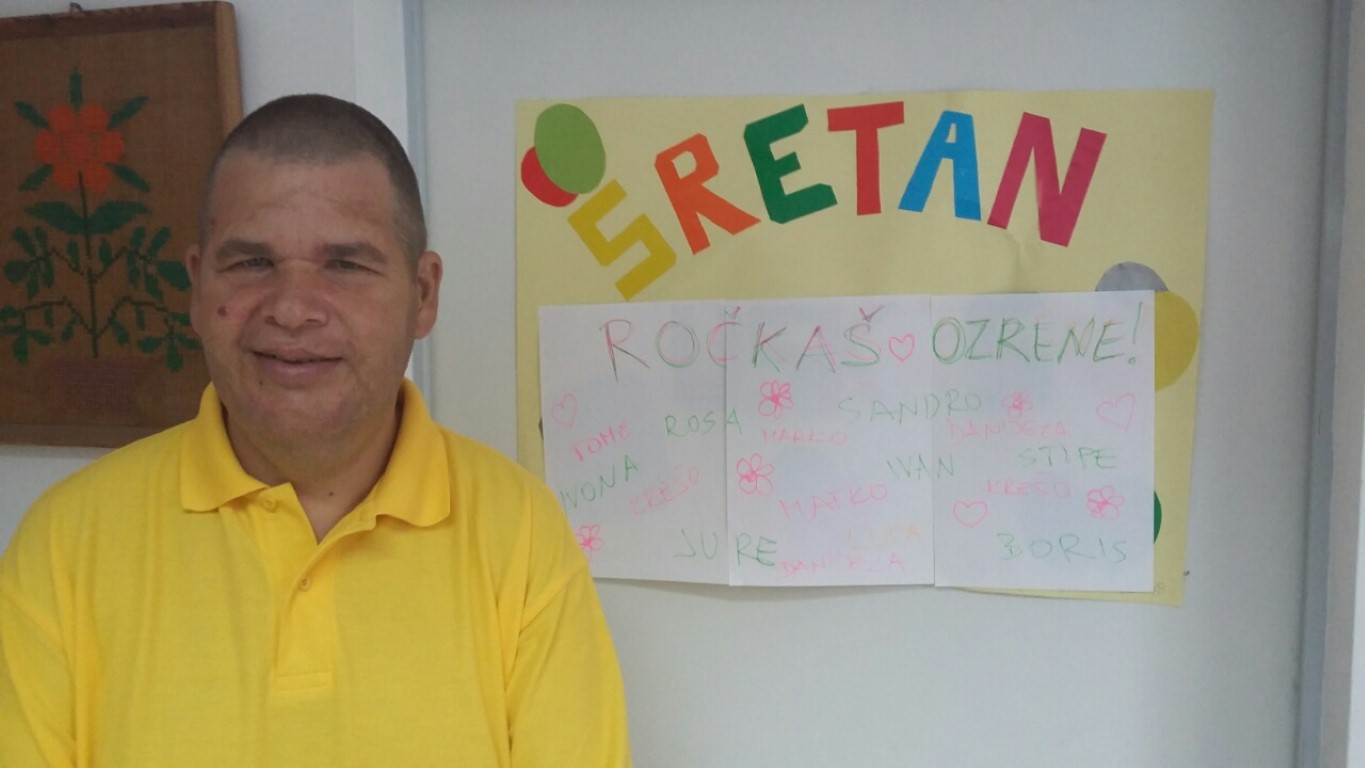 SRETAN
ROČKAŠ OZRENE!
ROSA SANDRO
TOME MARKO DANIJELA
IVONA IVAN STIPE
KREŠO MATKO KREŠO
JURE BORIS